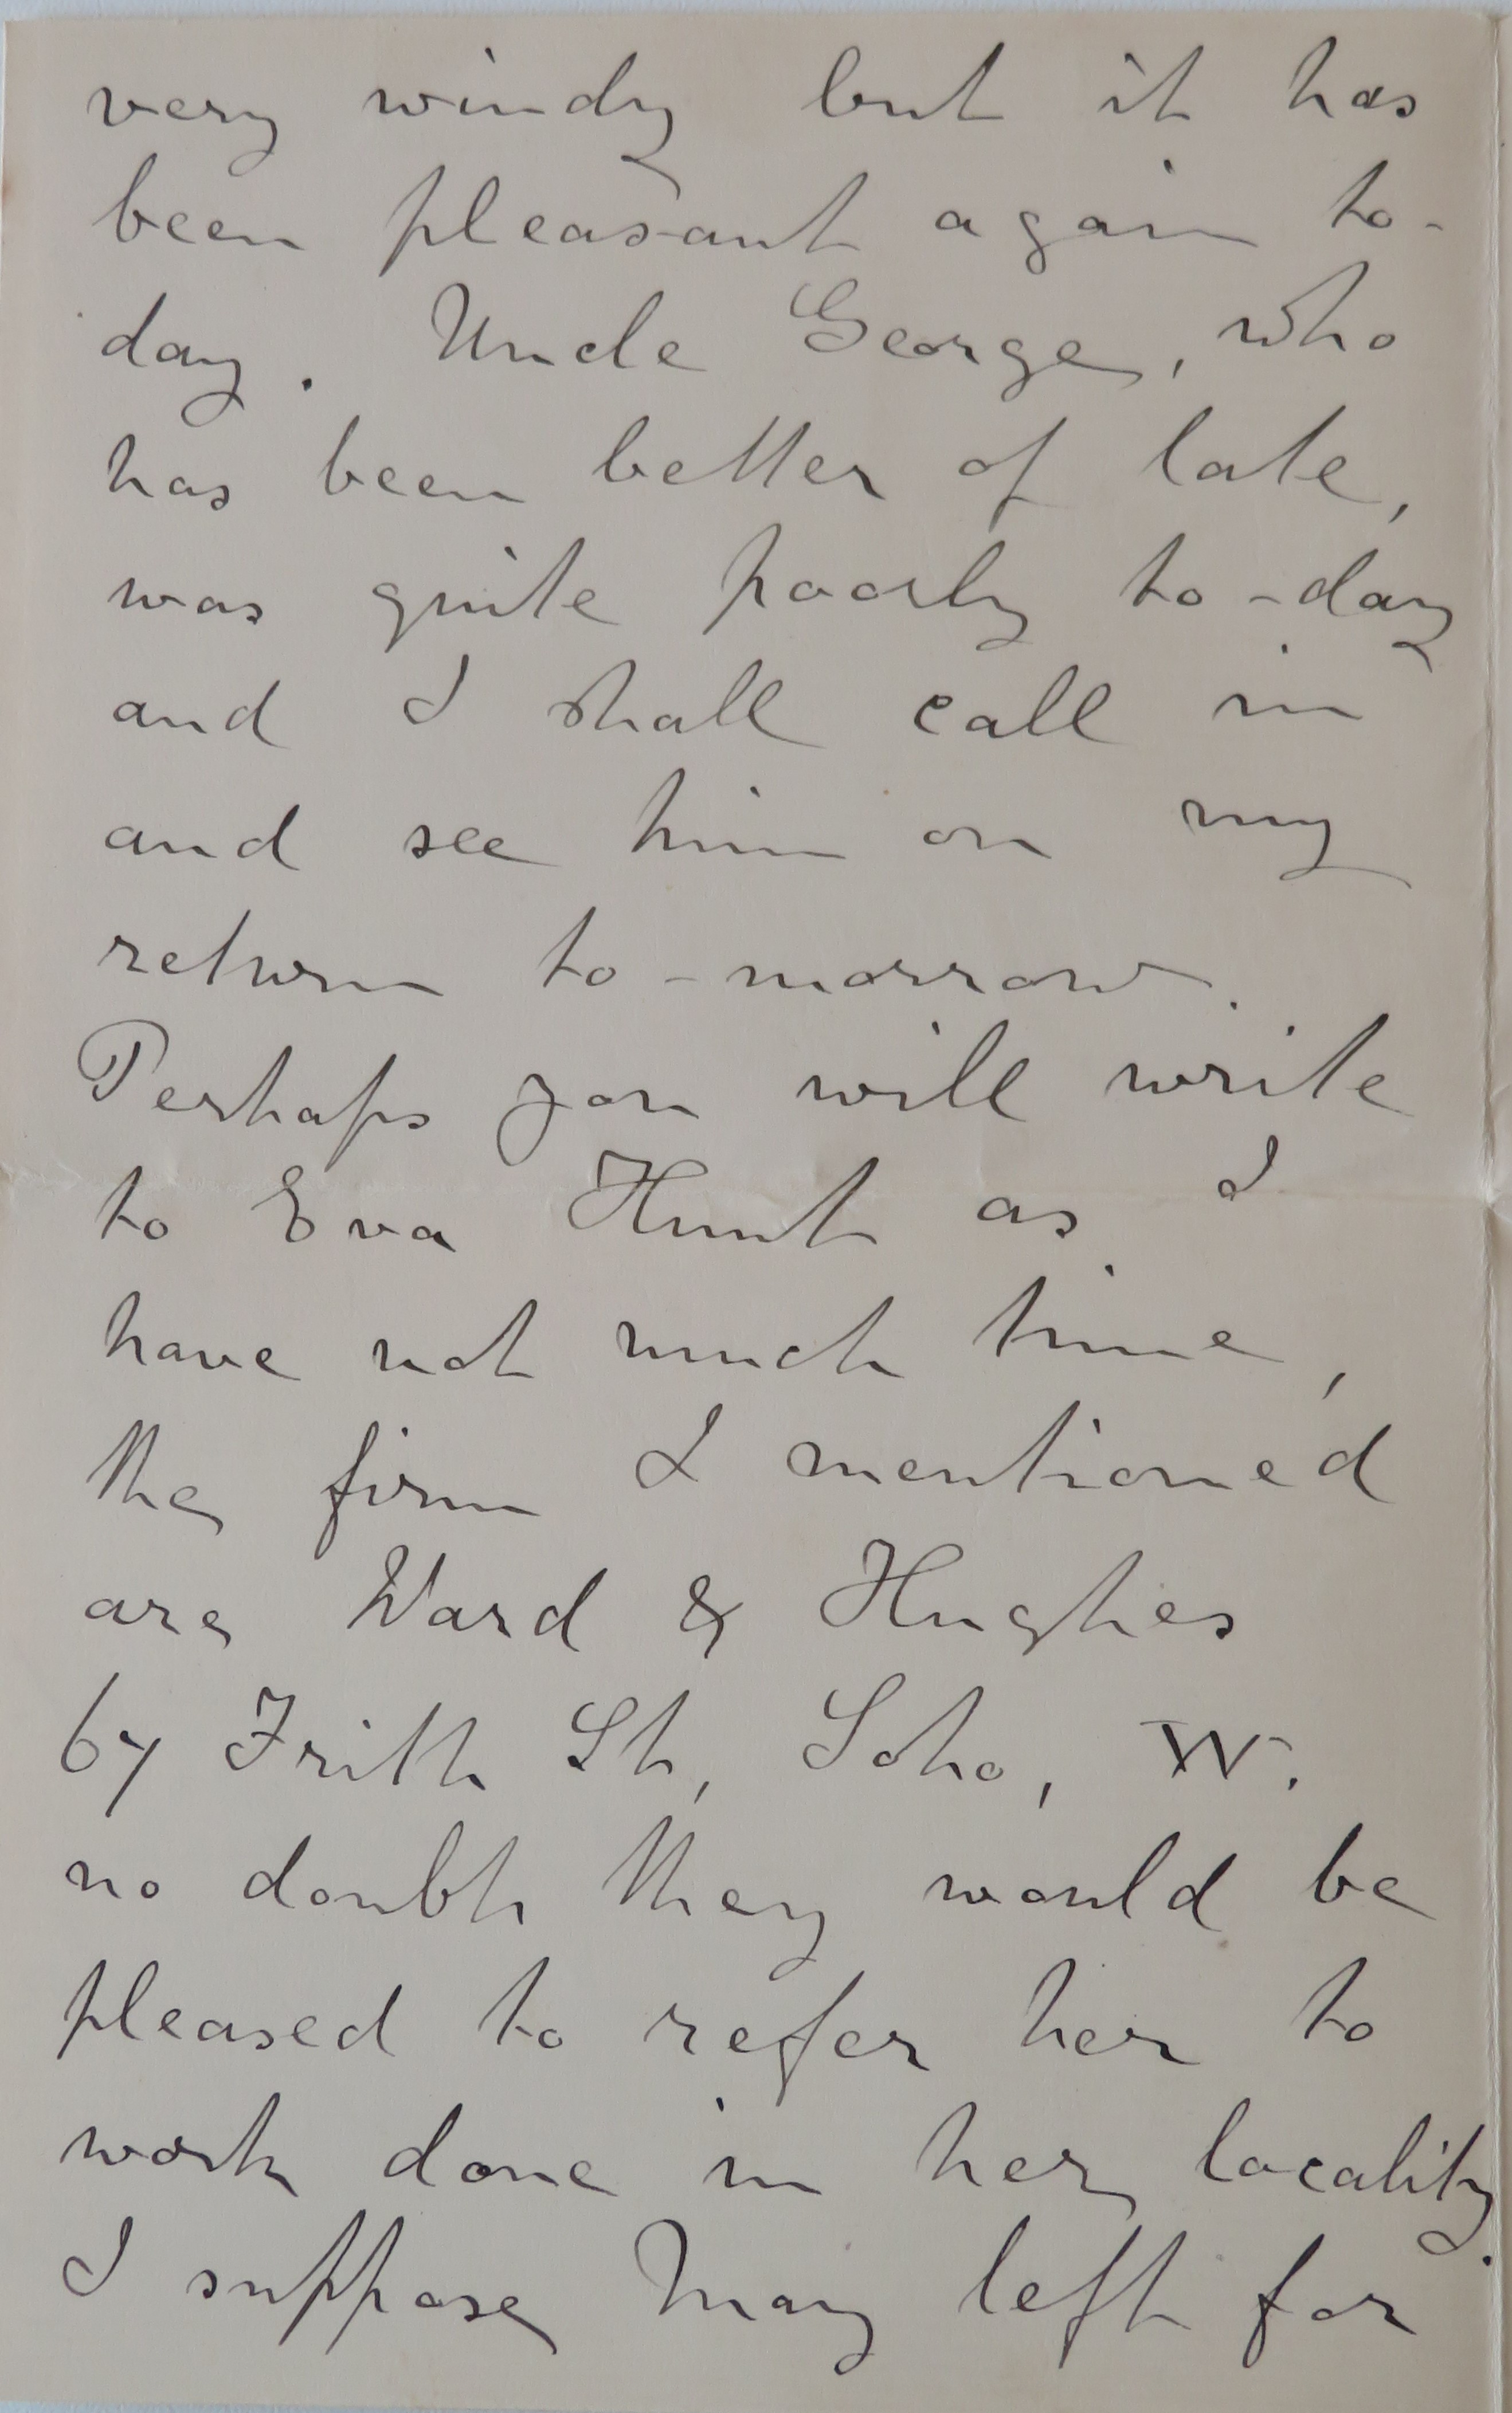 very windy but it has
been pleasant again to-
day. Uncle George, who
has been better of late,
was quite poorly to-day
and I shall call in
and see him on my
return to-morrow.
Perhaps you will write
to Eva Hunt as I
have not much time,
the firm I mentioned
are Ward & Hughes
67 Frith St, Soho, W.
no doubt they would be
pleased to refer her to
work done in her locality.
I suppose May left for